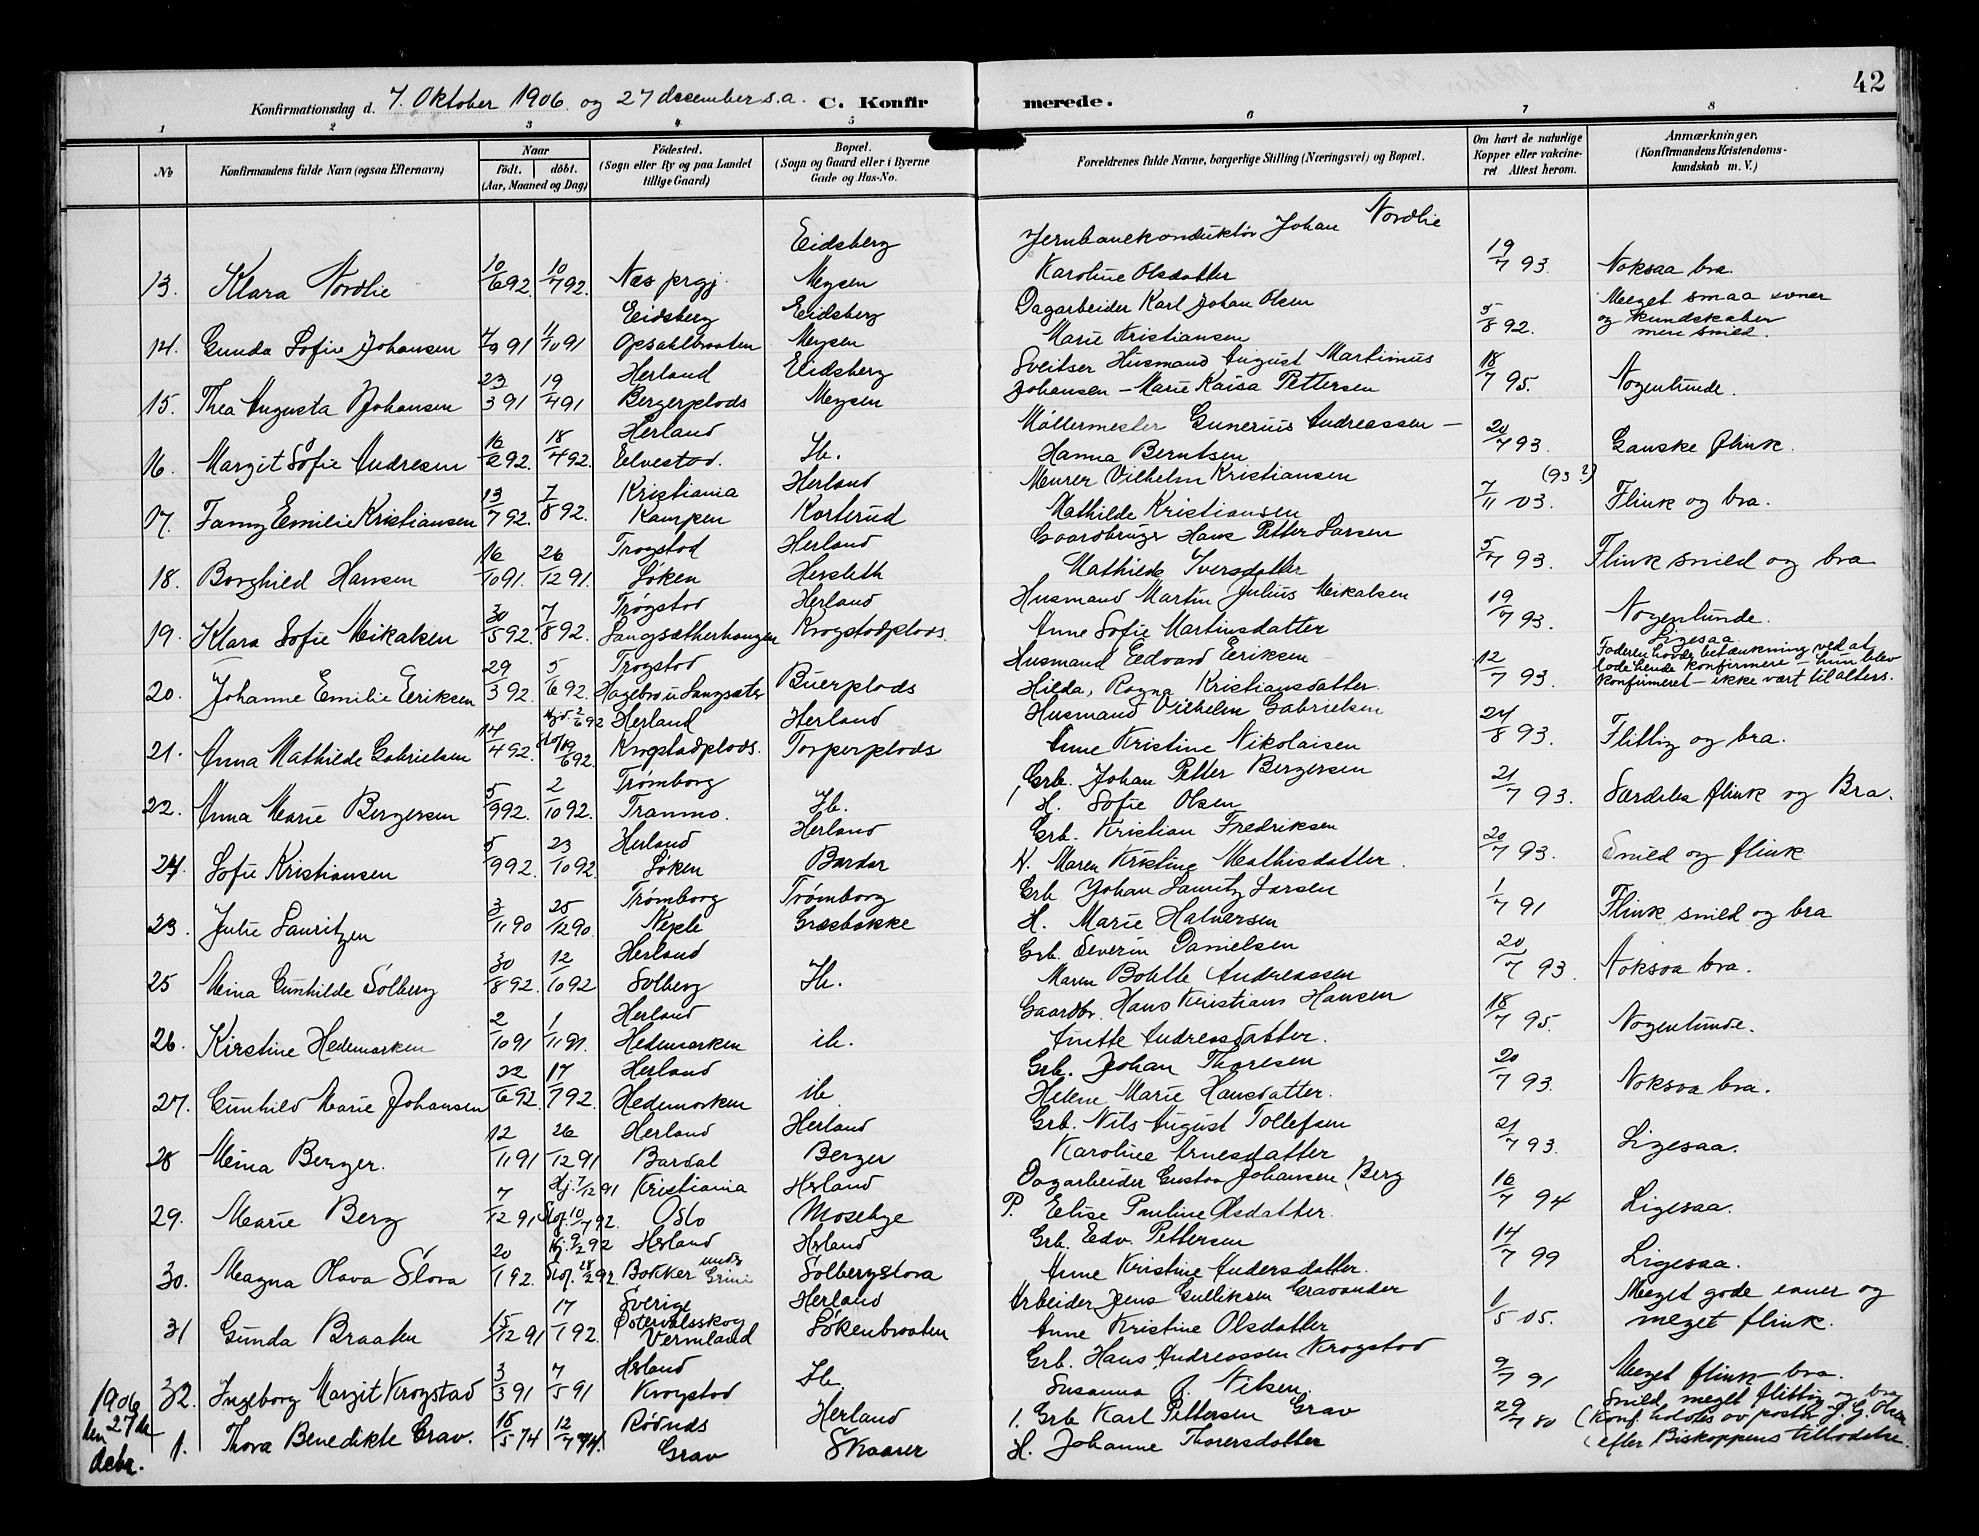 42
Konfirmationsdag d. 7. Oktober 1906 og 27 december s.a. C. Konfirmerede.
1 2 3 4 5 6 7 8
No
Konfirmandens fulde Navn (ogsaa Efternavn)
Naar
födt. döbt.
(Aar, Maaned og Dag)
Födested.
(Sogn eller By og paa Landet
tillige Gaard)
Bopæl.
(Sogn og Gaard eller i Byerne
Gade og Hus-No.
Forældrenes fulde Navne, borgerlige Stilling (Næringsvei) og Bopæl.
Om havt de naturlige
Kopper eller vakcine-
ret Attest herom.
Anmærkninger.
(Konfirmandens Kristendoms-
kundskab m. V.)
Eidsberg Jernbanekonduktör Johan Nordlie
13. Klara Nordlie 10/6 92. 10/7 92. Næs prgj. Mysen Karoline Olsdatter 19/7 93. Noksaa bra.
Eidsberg Eidsberg Dagarbeider Karl Johan Olsen Meget smaa evner
14. Gunda Sofie Johansen 7/9 91 11/10 91 Opsahlbraaten Mysen Marie Kristiansen 5/8 92. og kundskaber men snild.
Herland Eidsberg Sveitser Husmand August Martinius
15. Thea Augusta Johansen 23/3 91 19/4 91 Bergerplads Mysen Johansen – Marie Kaisa Pettersen 18/7 95. Nogenlunde.
Herland Møllermester Gunerius Andreassen –
16. Margit Sofie Andresen 16/2 92. 18/4 92. Elvestad. Ib. Hanna Berntsen 20/7 93. Ganske flink.
Kristiania Herland Murer Vilhelm Kristiansen (93?)
17. Fanny Emilie Kristiansen 13/7 92. 7/8 92. Kampen Korterud Mathilde Kristiansen 7/11 03. Flink og bra.
Trøgstad Herland Gaardbruger Hans Petter Larsen
18. Borghild Hansen 16/10 91. 26/12 91. Løken Hersleth Mathilde Iversdatter 5/7 93. Flink snild og bra
Trøgstad Herland Husmand Martin Julius Mikalsen
19. Klara Sofie Mikalsen 30/5 92. 7/8 92. Langsætherhaugen Krogstadplads. Anne Sofie Martinsdatter 19/7 93. Nogenlunde.
Trøgstad Husmand Edvard Eriksen Ligesaa
20. Johanne Emilie Eriksen 29/3 92. 5/6 92. Hagebro u. Langsæter Buerplads Hilda, Ragna Kristiansdatter. 12/7 93. Faderen havde betænkning ved at
lade hende konfirmere – hun blev
konfirmeret – ikke vært til alters.
Hjd. 2/6 92 Herland Herland Husmand Vilhelm Gabrielsen
21. Anna Mathilde Gabrielsen 14/4 92. 19/6 92. Krogstadplads. Torperplads Anne Kristine Nikolaisen 24/8 93. Flittig og bra.
Trømborg Grb. Johan Petter Bergersen
22. Anna Marie Bergersen 5/9 92. 2/10 92. Tranmo. Ib. H. Sofie Olsen 21/7 93. Særdeles flink og Bra.
Herland Herland Grb. Kristian Fredriksen
24. Sofie Kristiansen 5/9 92. 23/10 92. Løken Bardar H. Maren Kristine Mathisdatter. 20/7 93. Snild og flink
Trømborg Trømborg Grb Johan Lauritz Larsen
23. Julie Lauritzen 3/11 90 25/12 90. Nexle Græsbakke H. Marie Halversen 1/7 91 Flink snild og bra
Herland Grb. Severin Danielsen
25 Mina Gunhilde Solberg 30/8 92. 12/10 92 Solberg Ib. Maren Bohlle Andreassen 20/7 93. Noksaa bra.
Herland Gaardbr. Hans Kristian Hansen
26. Kirstine Hedemarken 2/10 91 1/11 91. Hedemarken ib. Anette Andreasdatter. 18/7 95. Nogenlunde.
Herland Grb. Johan Thoresen
27. Gunhild Marie Johansen 22/6 92. 17/7 92. Hedemarken ib. Helene Marie Hansdatter. 20/7 93. Noksaa bra.
Herland Herland Grb. Nils August Tollefsen
28 Mina Berger. 12/11 91 26/12 91 Bardal Berger Karoline Arnesdatter 21/7 93. Ligesaa.
Hj. 7/12 91 Kristiania Herland Dagarbeider Gustav Johansen Berg
29. Marie Berg 7/12 91 Stf. 10/7 92. Oslo Mosebye P. Elise Pauline Olsdatter. 16/7 94 Ligesaa.
Hj. 9/2 92 Herland Herland Grb. Edv. Pettersen
30. Magna Olava Slora 20/1 92. Stf. 28/2 92. Bakker under Grini Solbergslora Anne Kristine Andersdatter. 14/7 99 Ligesaa.
Sverige Herland Arbeider Jens Gulliksen Gravander Meget gode evner og
31 Gunda Braaten 15/12 91 17/1 92. Østervalsskog Vermland Løkenbraaten Anne Kristine Olsdatter 1/5 05. meget flink.
Herland Grb. Hans Andreassen Krogstad
32. Ingeborg Margit Krogstad 3/3 91 7/5 91 Krogstad Ib. Susanna J. Nilsen. 9/7 91 Meget flink – bra.
1906 den 27 de decbr.
1. Thora Benedikte Grav. 15/5 74 12/7 74. Rødnæs Grav Herland Skaarer 1. Grb Karl Pettersen Grav H. Johanne Thorersdatter 29/7 80 Snild, meget flittig og bra
(Konf. holdtes av pastor J. G. Olsen
efter Biskoppens tilladelse.